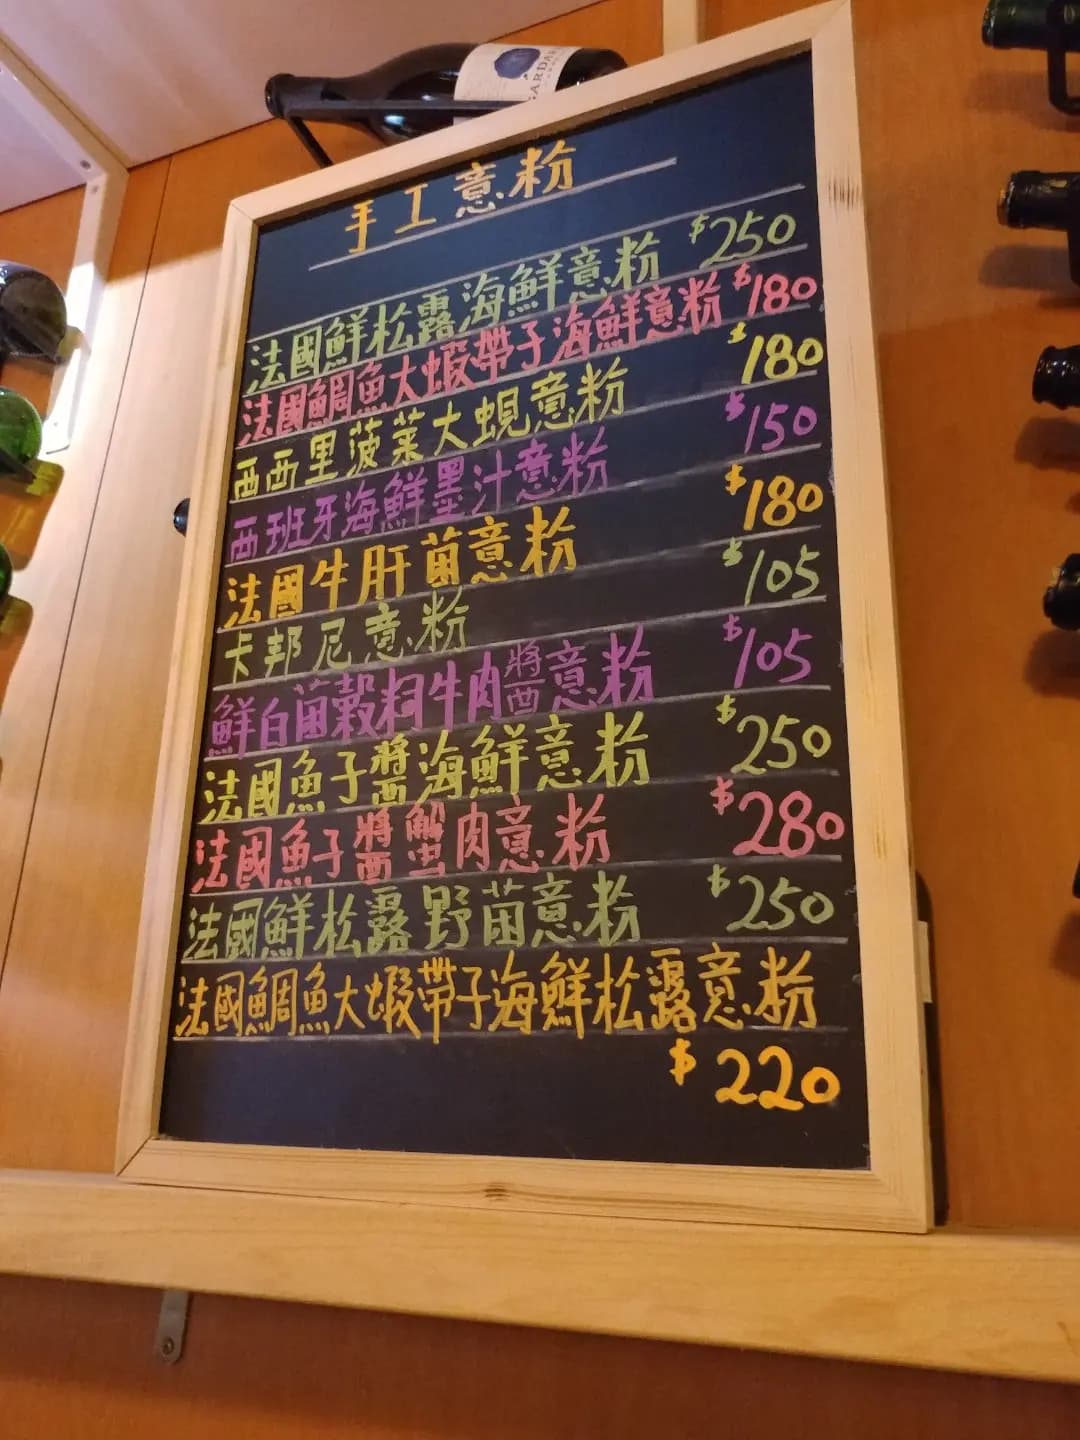 手工意粉
法國鮮松露海鮮意粉 $250
法國鯛魚大蝦帶子海鮮意粉 $180
西西里菠菜大蜆意粉 $180
西班牙海鮮墨汁意粉 $150
法國牛肝菌意粉 $180
卡邦尼意粉 $105
鮮白菌穀飼牛肉醬意粉 $105
法國魚子醬海鮮意粉 $250
法國魚子醬蟹肉意粉 $280
法國鮮松露野菌意粉 $250
法國鯛魚大蝦帶子海鮮松露意粉
$220